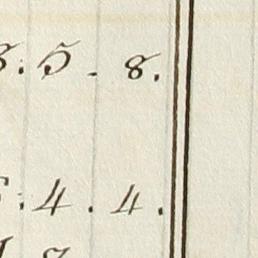 5. 8.
4. 4.